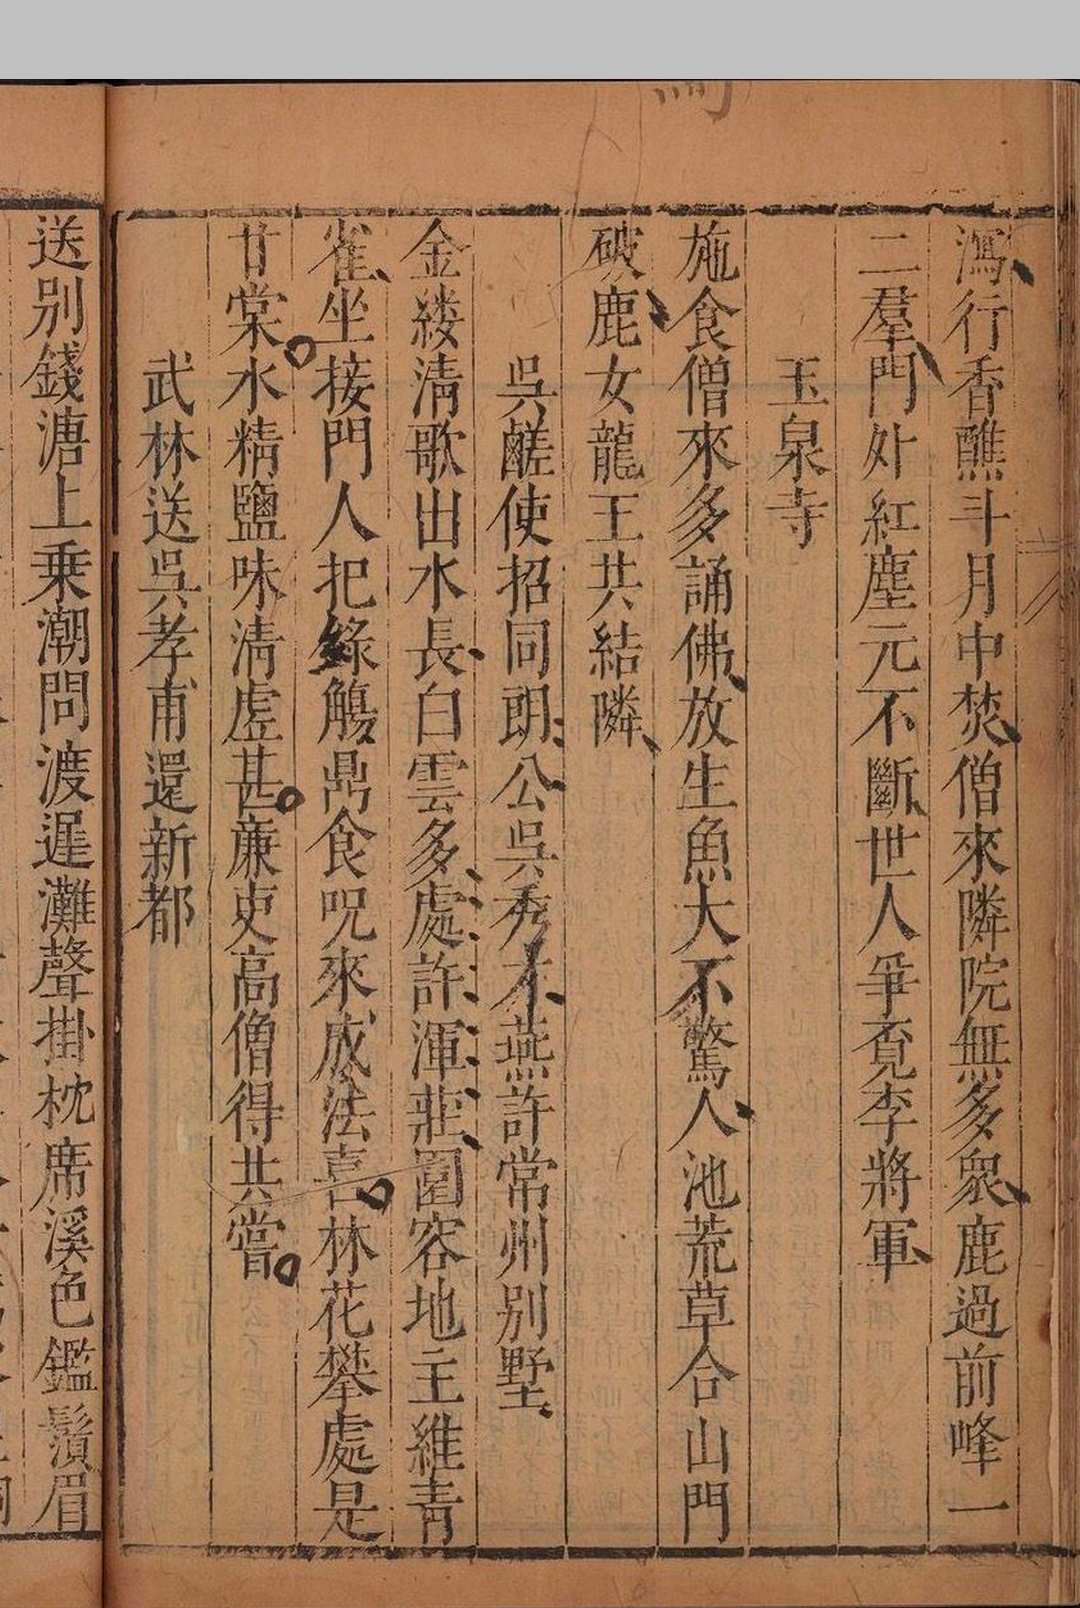 瀉行香醮斗月中焚僧來隣院無多衆鹿過前峰一
二羣門外紅塵元不斷世人爭覔李將軍
玉泉寺
施食僧來多誦佛放生魚大不驚人池荒草合山門
破鹿女龍王共結隣
吳鹺使招同朗公吳秀才燕許常州别墅
金縷清歌出水長白雲多處許渾莊園容地主維青
雀坐接門人把綠觴鼎食呪來成法喜林花攀處是
甘棠水精鹽味淸虛甚廉吏高僧得共嘗
武林送吳孝甫還新都
送别錢塘上乗潮問渡遲灘聲掛枕席溪色鑑鬚眉